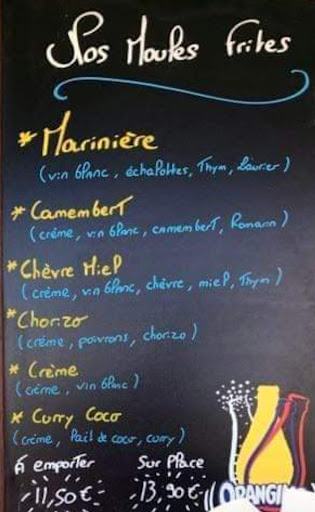 Nos Moules Frites
* Marinière
(vin blanc, échalottes, Thym, Laurier)
* Camembert
(crème, vin blanc, camembert, Romarin)
* Chèvre Miel
(crème, vin blanc, chèvre, miel, Thym)
* Chorizo
(crème, poivrons, chorizo)
* Crème
(crème, vin blanc)
* Curry Coco
(crème, lait de coco, curry)
À emporter Sur Place
11,50€ 13,90€
ORANGINA